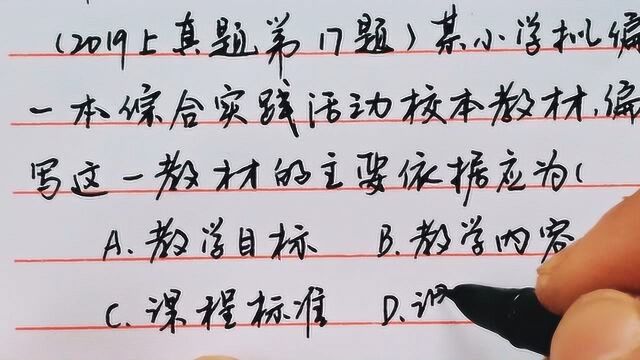 (2019上真题第17题)某小学拟编
一本综合实践活动校本教材,编
写这一教材的主要依据应为(
A.教学目标 B.教学内容
C.课程标准 D.